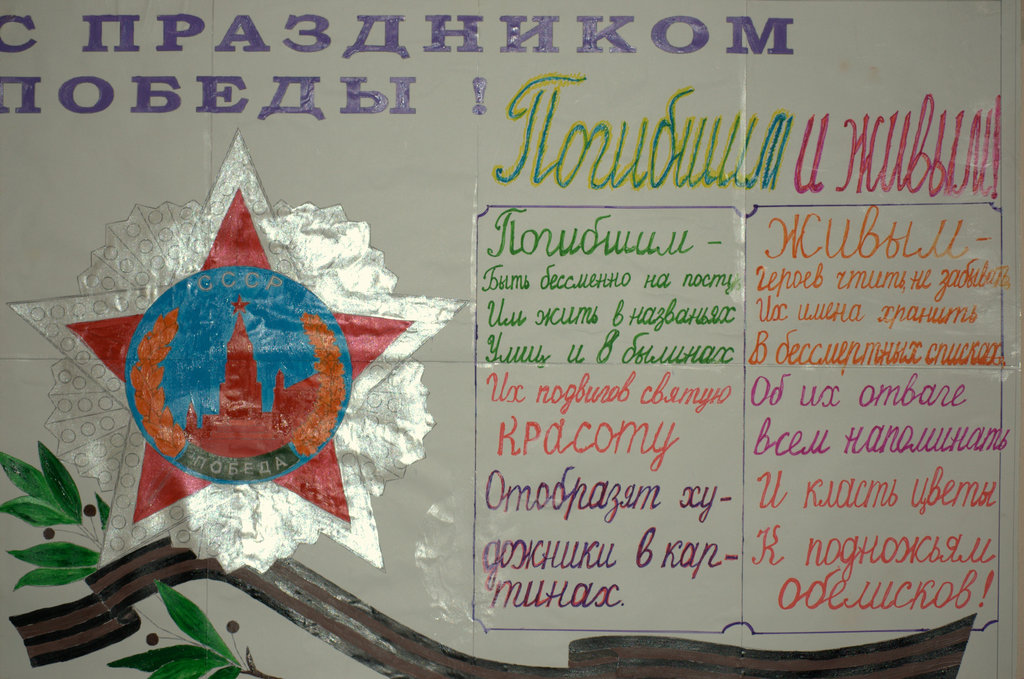 С ПРАЗДНИКОМ
ПОБЕДЫ !
Погибшим и живым!
СССР
ПОБЕДА
Погибшим –
Быть бессменно на посту,
Им жить в названьях
Улиц и в былинах
Их подвигов святую
Красоту
Отобразят ху-
дожники в кар-
тинах.
Живым –
Героев чтить, не забывать,
Их имена хранить
В бессмертных списках,
Об их отваге
всем напоминать
И класть цветы
К подножьям
обелисков!